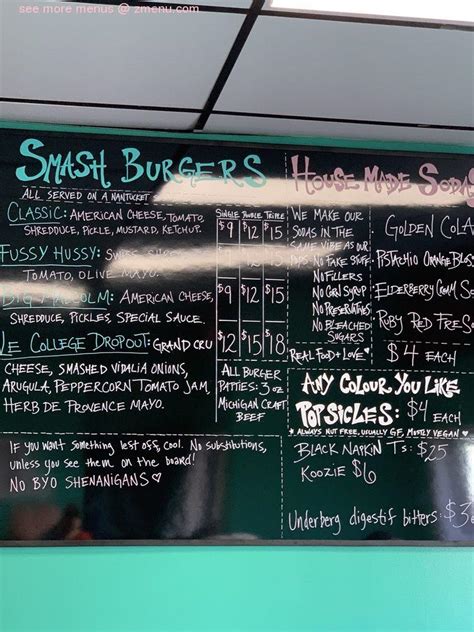 see more menus @ zmenu.com
SMASH BURGERS
ALL SERVED ON A NANTUCKET
SINGLE DOUBLE TRIPLE
CLASSIC: AMERICAN CHEESE, TOMATO,
SHREDDUCE, PICKLE, MUSTARD, KETCHUP.
$9 $12 $15
FUSSY HUSSY: SWISS
TOMATO, OLIVE MAYO.
$9 $12 $15
BIG MALCOLM: AMERICAN CHEESE,
SHREDDUCE, PICKLES, SPECIAL SAUCE.
$9 $12 $15
LE COLLEGE DROPOUT: GRAND CRU
CHEESE, SMASHED VIDALIA ONIONS,
ARUGULA, PEPPERCORN TOMATO JAM,
HERB DE PROVENCE MAYO.
$12 $15 $18
ALL BURGER
PATTIES: 3 OZ
MICHIGAN CRAFT
BEEF
IF you want something left off, cool. No substitutions,
unless you see them on the board!
NO BYO SHENANIGANS ♡
HOUSE MADE SODAS
WE MAKE OUR
SODAS IN THE
SAME VIBE AS OUR
POPS. NO FAKE STUFF
NO FILLERS
NO CORN SYRUP
NO PRESERVATIVES
NO BLEACHED
SUGARS
REAL FOOD + LOVE ♡
GOLDEN COLA
PISTACHIO ORANGE BLOS
ELDERBERRY CREAM SO
RUBY RED FRES
$4 EACH
ANY COLOUR YOU LIKE
POPSICLES: $4 EACH
* ALWAYS NUT FREE, USUALLY GF, MOSTLY VEGAN ♡
BLACK NAPKIN Ts: $25
KOOZIE $6
Underberg digestif bitters: $3